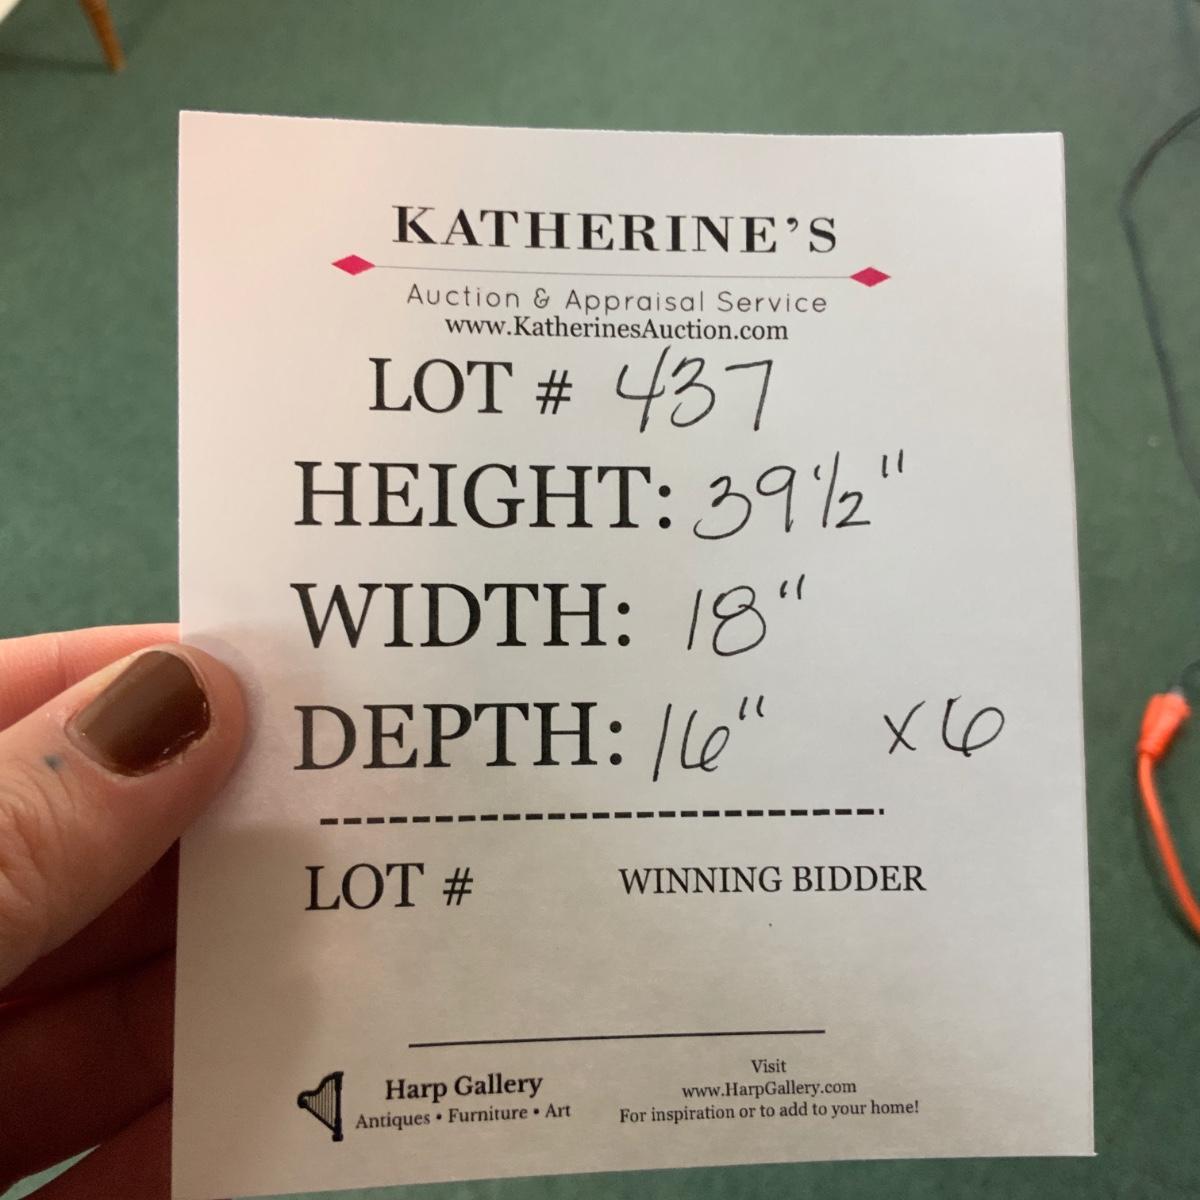 KATHERINE'S
Auction & Appraisal Service
www.KatherinesAuction.com
LOT # 437
HEIGHT: 39 1/2"
WIDTH: 18"
DEPTH: 16" x6
LOT # WINNING BIDDER
Harp Gallery
Antiques • Furniture • Art
Visit
www.HarpGallery.com
For inspiration or to add to your home!